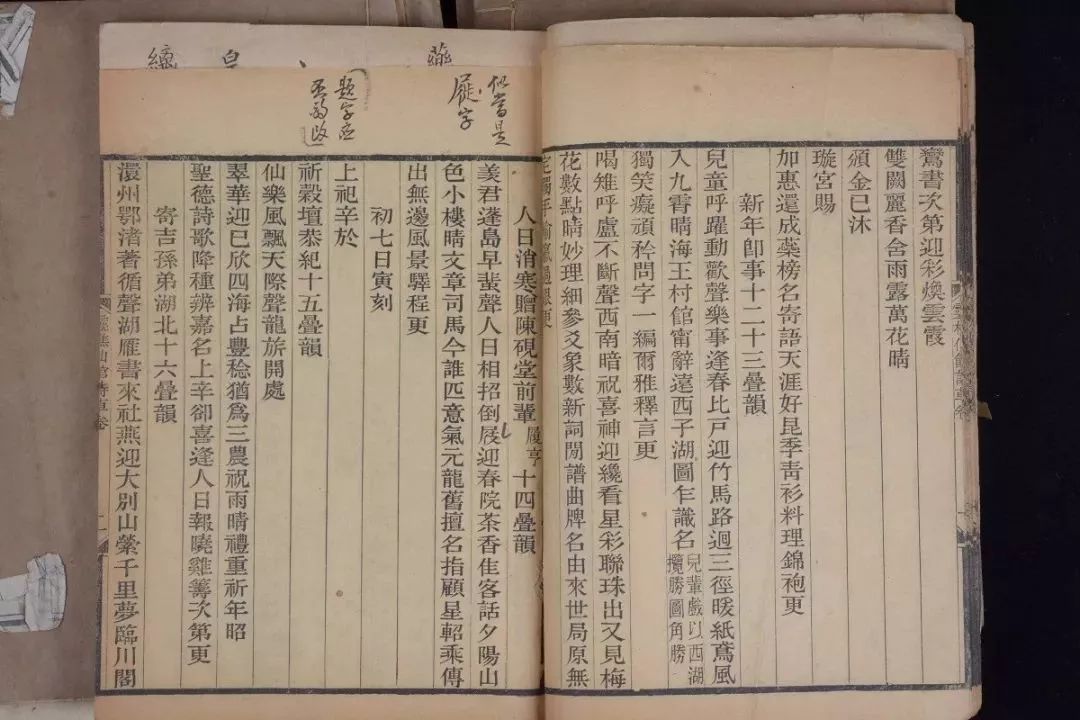 鸞書次第迎彩煥雲霞
雙闕麗香含雨露萬花晴
頒金已沐
璇宮賜
加惠還成蘂榜名寄語天涯好昆季靑衫料理錦袍更
新年卽事十二十三疊韻
兒童呼躍動歡聲樂事逢春比戶迎竹馬路迴三徑暖紙鳶風
入九霄晴海王村館甯辭遠西子湖圖乍識名
兒輩戲以西湖
攬勝圖角勝
獨笑癡頑矜問字一編爾雅釋言更
喝雉呼盧不斷聲西南暗祝喜神迎纔看星彩聯珠出又見梅
花數點晴妙理細參爻象數新詞閒譜曲牌名由來世局原無
人日消寒贈陳硯堂前輩
履亨
十四疊韻
羨君蓬島早蜚聲人日相招倒屐迎春院茶香佳客話夕陽山
色小樓晴文章司馬今誰匹意氣元龍舊擅名指顧星軺乘傳
出無邊風景驛程更
初七日寅刻
上祀辛於
祈穀壇恭紀十五疊韻
仙樂風飄天際聲龍旂開處
翠華迎已欣四海占豐稔猶爲三農祝雨晴禮重祈年昭
聖德詩歌降種辨嘉名上辛卻喜逢人日報曉雞籌次第更
寄吉孫弟湖北十六疊韻
澴州鄂渚著循聲湖雁書來社燕迎大別山縈千里夢臨川閣
似當是
屣字
題字應